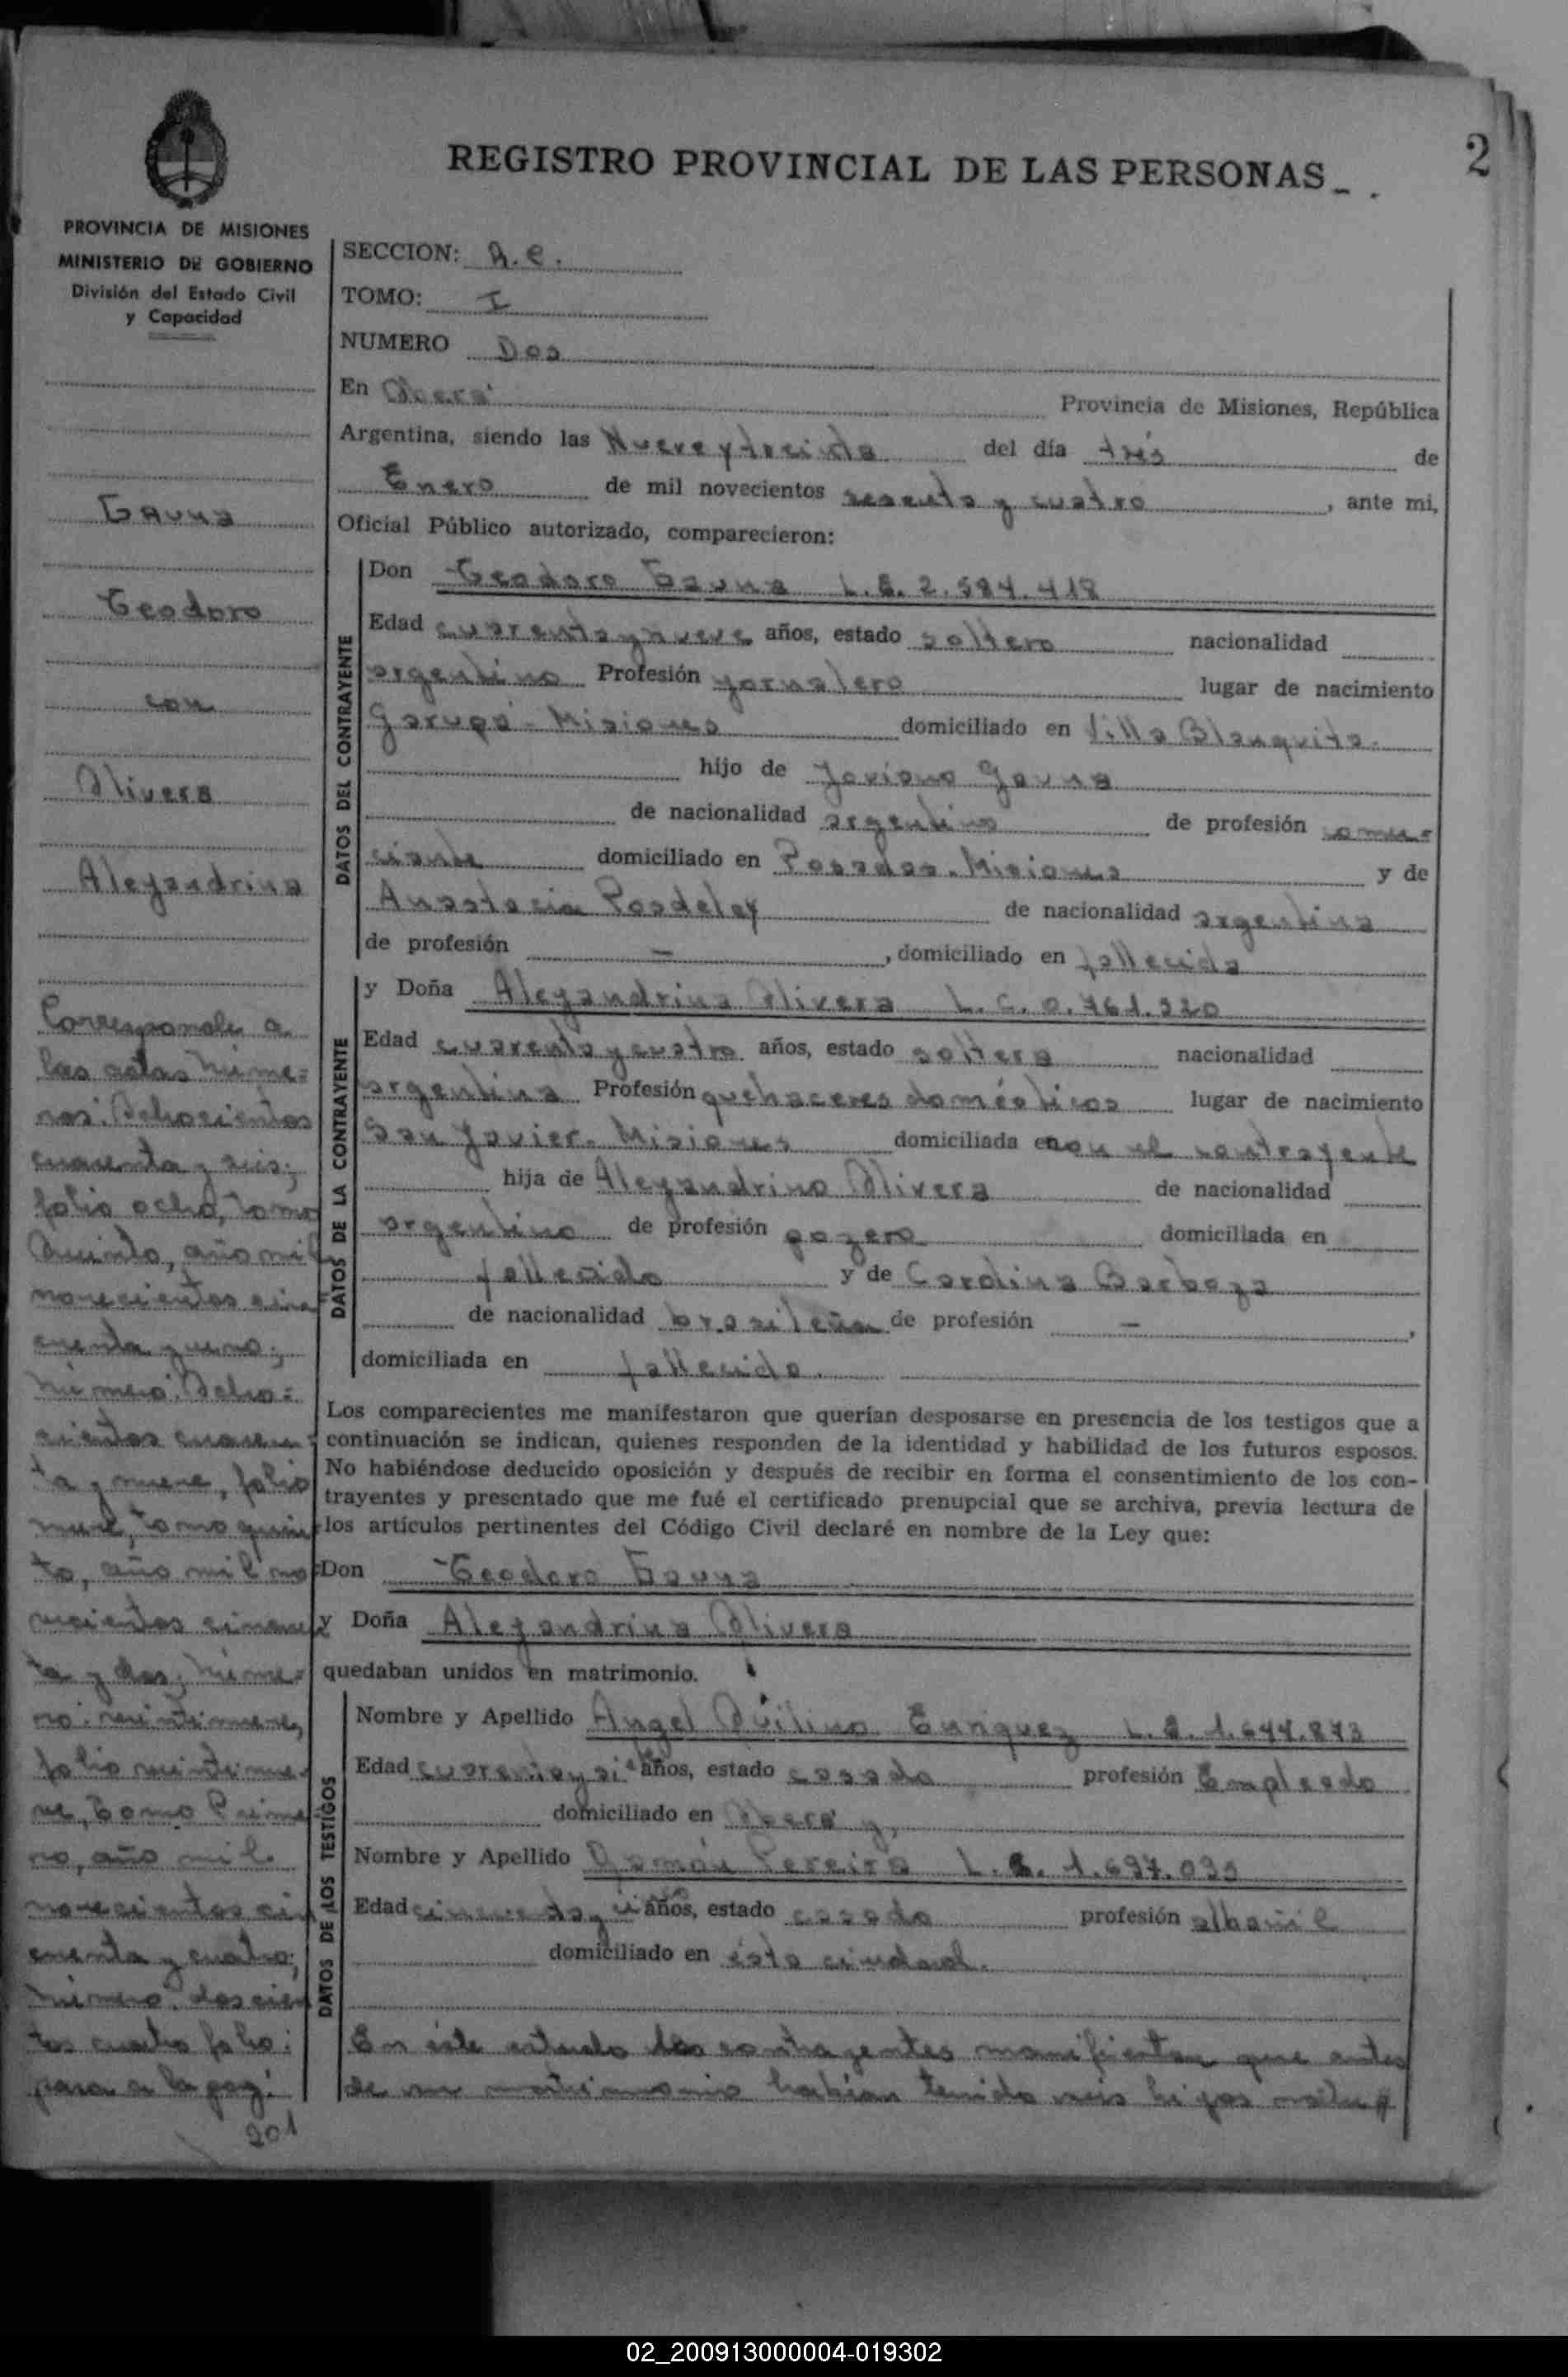 REGISTRO PROVINCIAL DE LAS PERSONAS
2
PROVINCIA DE MISIONES
MINISTERIO DE GOBIERNO
División del Estado Civil
y Capacidad
Gauna
Teodoro
con
Olivera
Alejandrina
Corresponde a
las actas núme=
ros: Ochocientos
cuarenta y seis;
folio ocho, tomo
Quinto, año mil
novecientos cin
cuenta y uno;
número: Ocho=
cientos cuaren=
ta y nueve, folio
nueve, tomo quin
to, año mil no
vecientos cincuen
ta y dos; núme=
ro: veintinueve,
folio veintinue=
ve, Tomo Prime
ro, año mil
novecientos cin
cuenta y cuatro;
número: doscien
tos cuatro folio:
pasa a la pag:
201
SECCION: A.C.
TOMO: I
NUMERO Dos
En Oberá Provincia de Misiones, República
Argentina, siendo las Nueve y treinta del día tres de
Enero de mil novecientos sesenta y cuatro, ante mi,
Oficial Público autorizado, comparecieron:
DATOS DEL CONTRAYENTE
Don Teodoro Gauna L.E. 2.584.418
Edad cuarenta y nueve años, estado soltero nacionalidad
argentino Profesión jornalero lugar de nacimiento
Garupá - Misiones domiciliado en Villa Blanquita.
hijo de Gauna
de nacionalidad argentino de profesión comer
ciante domiciliado en Posadas. Misiones y de
Anastacia de nacionalidad argentina
de profesión — , domiciliado en fallecida
DATOS DE LA CONTRAYENTE
y Doña Alejandrina Olivera L.C. 0.461.220
Edad cuarenta y cuatro años, estado soltera nacionalidad
argentina Profesión quehaceres domésticos lugar de nacimiento
San Javier. Misiones domiciliada en con el contrayente
hija de Alejandrino Olivera de nacionalidad
argentino de profesión pozero domiciliada en
fallecido y de Carolina Barboza
de nacionalidad brasileña de profesión — ,
domiciliada en fallecida.
Los comparecientes me manifestaron que querían desposarse en presencia de los testigos que a
continuación se indican, quienes responden de la identidad y habilidad de los futuros esposos.
No habiéndose deducido oposición y después de recibir en forma el consentimiento de los con-
trayentes y presentado que me fué el certificado prenupcial que se archiva, previa lectura de
los artículos pertinentes del Código Civil declaré en nombre de la Ley que:
Don Teodoro Gauna
y Doña Alejandrina Olivera
quedaban unidos en matrimonio.
DATOS DE LOS TESTIGOS
Nombre y Apellido Angel Enriquez L.E. 1.644.873
Edad cuarenta y años, estado casado profesión Empleado
domiciliado en Oberá y,
Nombre y Apellido Pereira L.E. 1.697.095
Edad años, estado casado profesión albañil
domiciliado en ésta ciudad.
En éste estado los contrayentes manifiestan que antes
de su matrimonio habían tenido seis hijos
02_200913000004-019302